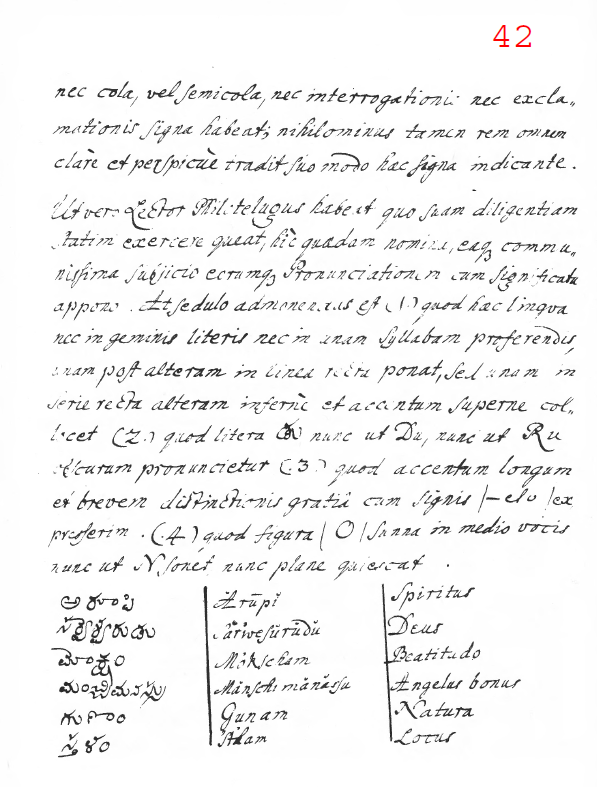 42
nec cola, vel semicola, nec interrogationis nec excla„
mationis signa habeat; nihilominus tamen rem omnem
clare et perspicuè tradit suo modo hæc signa indicante.
Ut vero Lector Philotelugus habeat quo suam diligentiam
statim exercere queat, hìc quædam nomina, eaq commu„
nissima subjicio eorumq Pronunciationem cum significatu
appono. At sedulo admonendus est (1.) quod hæc lingva
nec in geminis literis nec in unam syllabam proferendis,
unam post alteram in linea recta ponat, sed unam in
serie recta alteram infernè et accentum superne col„
locet (2.) quod litera nunc ut Du, nunc ut Ru
obscurum pronuncietur (3.) quod accentum longum
et brevem distinctionis gratiâ cum signis |– el ᴗ| ex
presserim. (4.) quod figura |O| sunna in medio vocis
nunc ut N sonet nunc plane quiescat.
అరూపి Arūpĭ Spiritus
సర్వేశ్వరుడు Sărweſŭrūdŭ Deus
మోక్షం Mŏkscham Beatitudo
మంచిమనస్సు Mănschi mănăssu Angelus bonus
గుణం Gunam Natura
స్తళం Stălam Locus